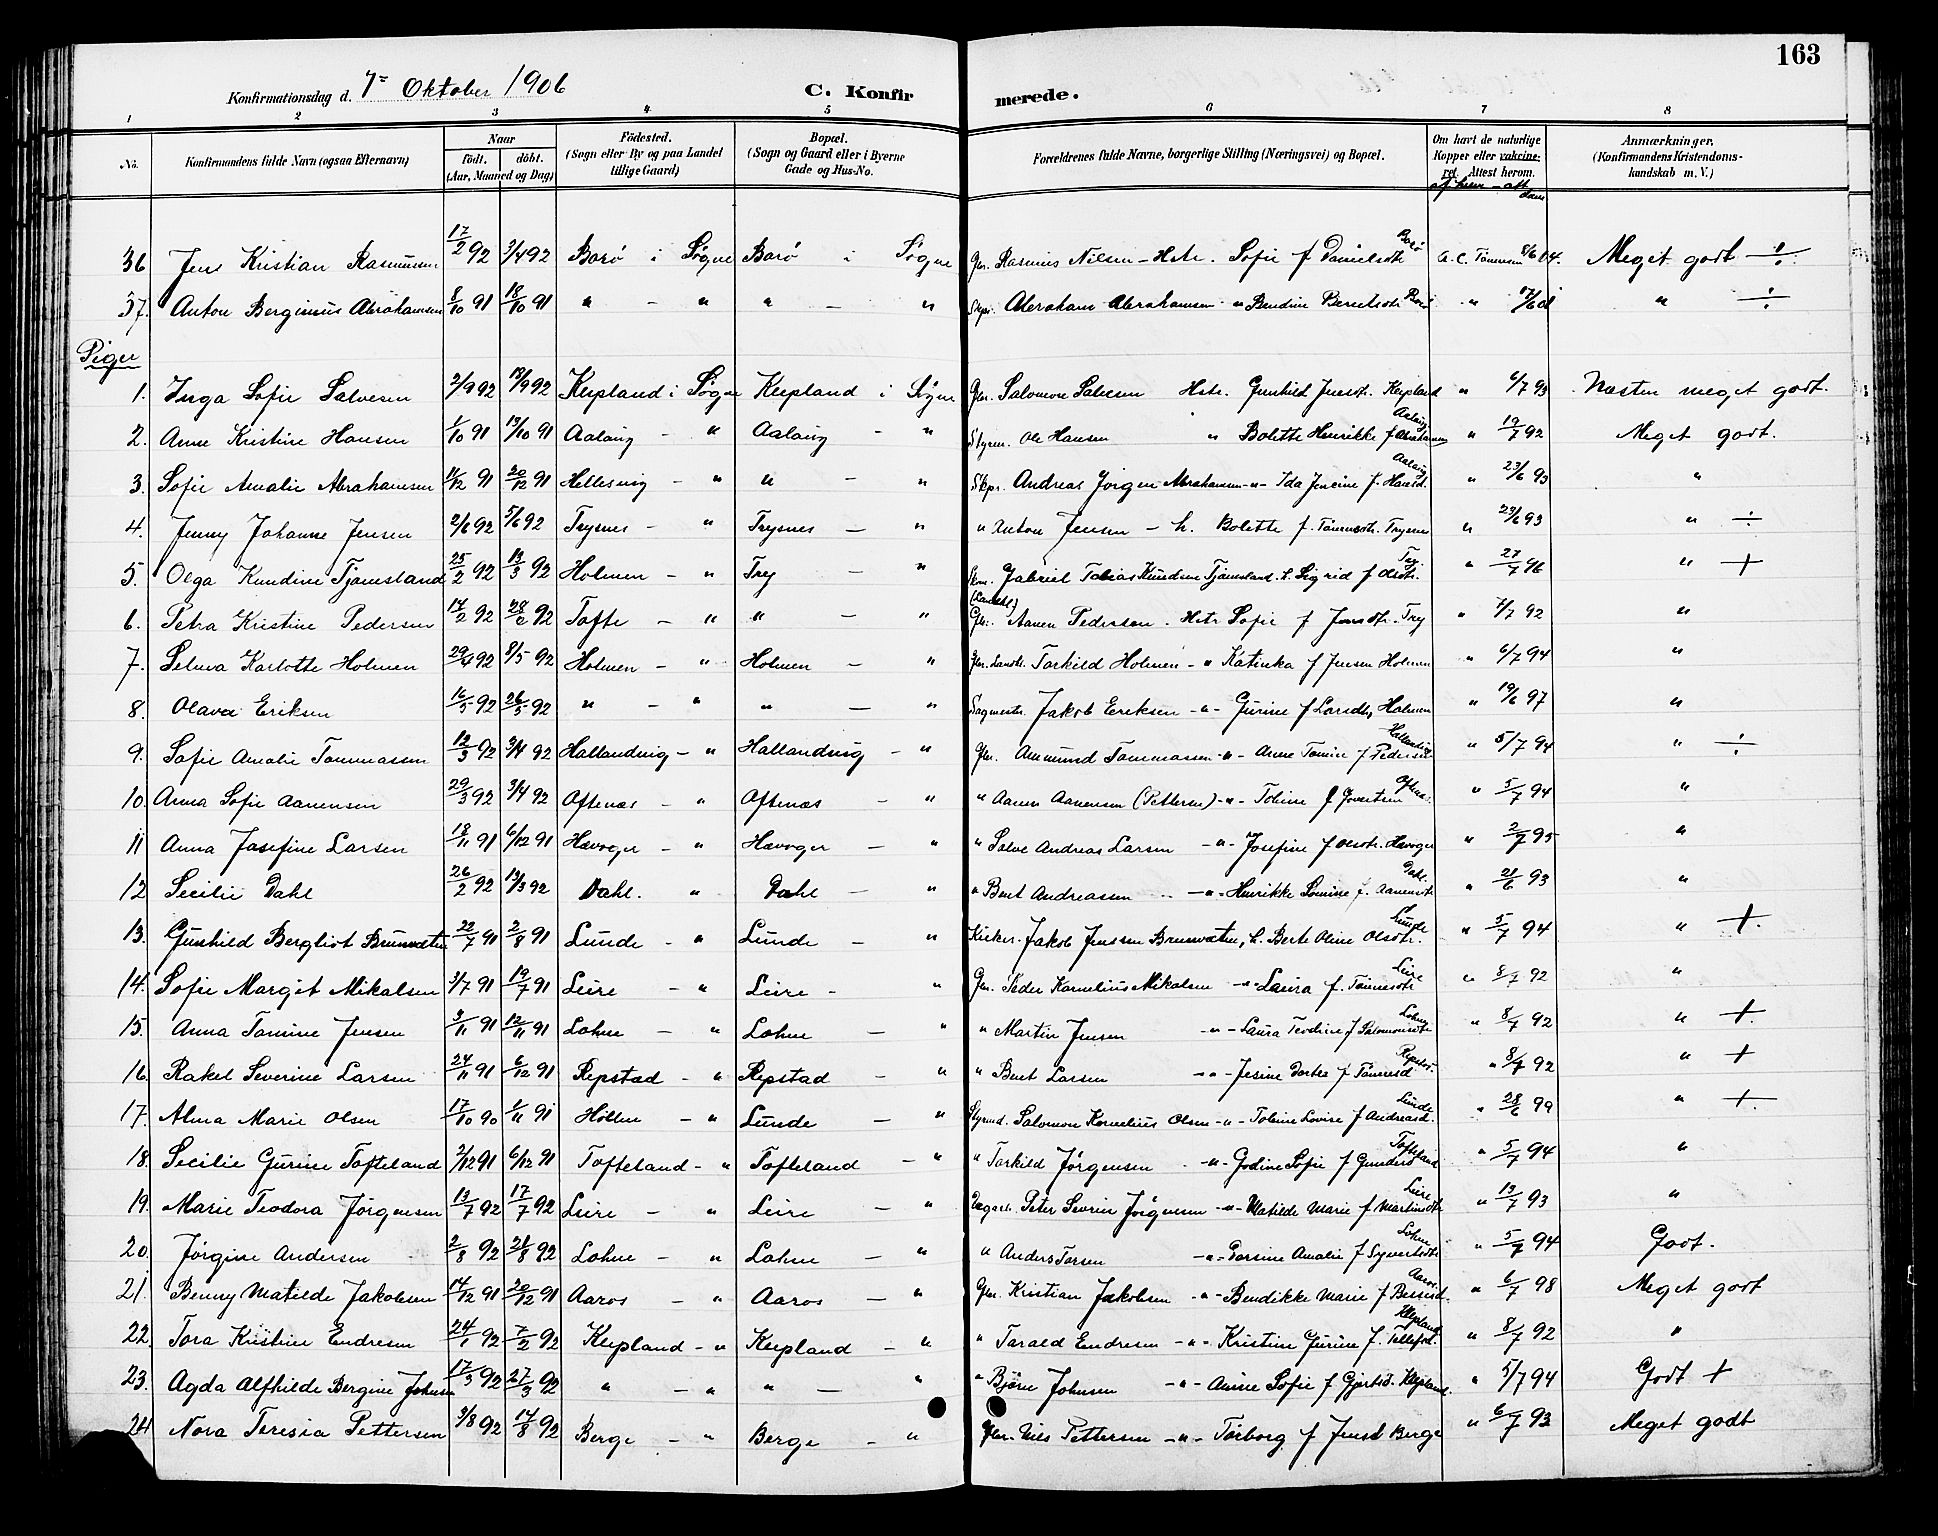 163
Konfirmationsdag d. 7de Oktober 1906 C. Konfir merede.
1 2 3 4 5 6 7 8
No. Konfirmandens fulde Navn (ogsaa Efternavn) Naar födt. döbt. (Aar, Maaned og Dag) Födested. (Sogn eller By og paa Landet tillige Gaard) Bopæl. (Sogn og Gaard eller i Byerne Gade og Hus-No. Forældrenes fulde Navne, borgerlige Stilling (Næringsvei) og Bopæl. Om havt de naturlige Kopper eller vakcineret. Attest herom. af hvem - att. dom Anmærkninger. (Konfirmandens Kristendomskundskab m. V.)
36 Jens Kristian Rasmussen 17/2 92 3/4 92 Borø i Søgne Borø i Søgne Gbr. Rasmus Nilsen - Hstr. Sofie f Danielsdtr Borø A. C. Tönnesen 8/6 04. Meget godt ÷
37. Anton Berginius Abrahamsen 8/10 91 18/10 91 " - " " - " Skpr. Abraham Abrahamsen - " Bendine Berntsdtr Borø " 17/6 01 " ÷
Piger
1. Inga Sofie Salvesen 2/9 92 13/9 92 Klepland i Søgne Klepland i Søgne Gbr. Salomon Salvesen Hstr. Gunhild Jensdtr. Klepland " 6/7 93 Næsten meget godt.
2. Anne Kristine Hansen 1/10 91 13/10 91 Aalaug - " Aalaug - " Styrm. Ole Hansen " Bolette Henrikke f Abrahamsen Aalaug " 19/7 92 Meget godt.
3. Sofie Amalie Abrahamsen 11/12 91 20/12 91 Hellesvig - " " - " Skpr. Andreas Jörgen Abrahamsen - " - Ida Jensine f. Haasd. Aalaug " 23/6 93 "
4. Jenny Johanne Jensen 2/6 92 5/6 92 Trysnes - " Trysnes - " " Anton Jensen - h. Bolette f. Tönnesdtr. Trysnes " 23/6 93 " ÷
5. Olga Kundine Tjomesland 25/2 92 13/3 92 Holmen - " Try - " Skm. Gabriel Tobias Knudsen Tjomesland. h. Sigrid f Olsdtr. Try. " 27/7 96 " +
6. Petra Kristine Pedersen 14/2 92 28/2 92 Tofte - " " - " Gbr. Aanen Pedersen. Hstr Sofie f Jensdtr. Try " 7/7 92 "
7. Selma Karlotte Holmen 29/4 92 8/5 92 Holmen - " Holmen - " Gbr. Landh. Torkild Holmen - " Katinka f Jensen Holmen " 6/7 94 "
8. Olava Eriksen 16/5 92 26/5 92 " - " " - " Sagmestr. Jakob Eriksen - " - Gurine f Larsdtr, Holmen " 19/6 97 "
9. Sofie Amalie Tommassen 12/3 92 3/4 92 Hallandvig - " Hallandvig - " Gbr. Ammund Tommassen - " - Anne Tomine f Pedersd Hallandvig " 5/7 94 " ÷
10. Anna Sofie Aanensen 29/3 92 3/4 92 Oftenæs - " Oftenæs - " " Aanen Aanensen (Pettersen) - " - Tobine f Govertsen Oftenæs. " 5/7 94 "
11 Anna Josefine Larsen 18/11 91 6/12 91 Hævoger - " Hævoger - " " Salve Andreas Larsen - " - Josefine f Olsdtr. Hævoger " 2/7 95 "
12 Secilie Dahl 26/2 92 13/3 92 Dahl. " Dahl - " " Bent Andreassen - " - Henrikke Lovine f. Aanensdtr Dahl. " 21/6 93 "
13. Gunhild Bergliot Brunvatne 22/7 91 2/8 91 Lunde - " Lunde - " Kirker. Jakob Jenssen Brunvatne, h. Berte Oline Olsdtr. Lunde " 5/7 94 " +.
14. Sofie Margit Mikalsen 3/7 91 19/7 91 Leire - " Leire - " Gbr. Peder Kornelius Mikalsen - " Laura f. Tönnesdtr Leire " 8/7 92 "
15. Anna Tomine Jensen 3/11 91 12/11 91 Lohne - " Lohne - " " Martin Jensen - " - Laura Teodine f Salomonsdtr Lohne " 8/7 92 " +.
16. Rakel Severine Larsen 24/11 91 6/12 91 Repstad - " Repstad - " " Bent Larsen - " - Jesine Dortea f Tönnesd Repstad. " 8/7 92 " +
17. Alma Marie Olsen 17/10 90 1/11 91 Höllen - " Lunde - " Styrmd. Salomon Kornelius Olsen - " - Tobine Lovise f Andreasd. Lunde " 28/6 99 " +.
18. Secilie Gurine Tofteland 2/12 91 6/12 91 Tofteland - " Tofteland - " " Torkild Jørgensen - " - Godine Sofie f Gundersd Tofteland " 5/7 94 "
19. Marie Teodora Jørgensen 13/7 92 17/7 92 Leire - " Leire - " Dagarb. Peter Severin Jörgensen - " - Matilde Marie f Martinsdtr Leire " 13/7 93 "
20. Jørgine Andersen 2/8 92 21/8 92 Lohne - " Lohne - " " Anders Torsen - " - Torsine Amalie f Syvertsdtr Lohne " 5/7 94 Godt.
21. Benny Matilde Jakobsen 14/12 91 20/12 91 Aaros - " Aaros - " Gbr. Kristian Jakobsen - " - Bendikke Marie f Bessesd. Aaros. " 6/7 98 Meget godt
22. Tora Kristine Endresen 24/1 92 7/2 92 Klepland - " Klepland - " " Tarald Endresen - " - Kristine Gurine f. Tellefsd. Klepland " 8/7 92 "
23. Agda Alfhilde Bergine Johnsen 17/3 92 27/3 92 " - " " - " " Björn Johnsen - " - Anine Sofie f Gjertsd. Klepland. " 5/7 94 Godt +
24 Nora Teresia Pettersen 3/8 92 14/8 92 Berge - " Berge - " Gbr. Nils Pettersen - " - Torborg f Jensd Berge " 6/7 93 Meget godt